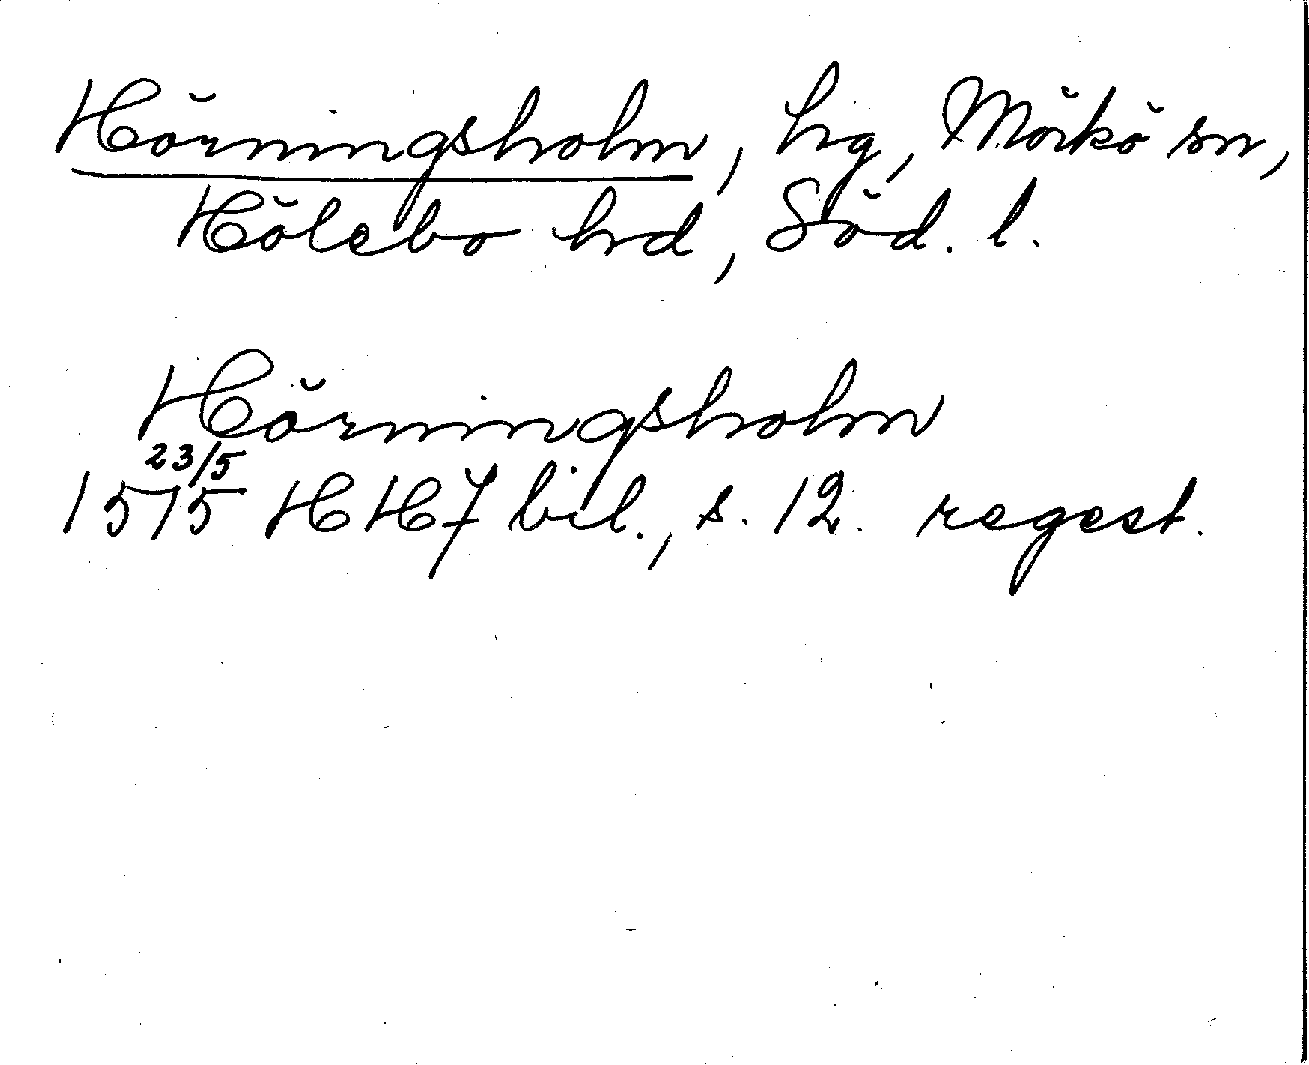 Hörningsholm, hg, Mörkö sn,
Hölebo hd, Söd. l.
Hörningsholm
23/5
1575 HH7 bil., s. 12. regest.